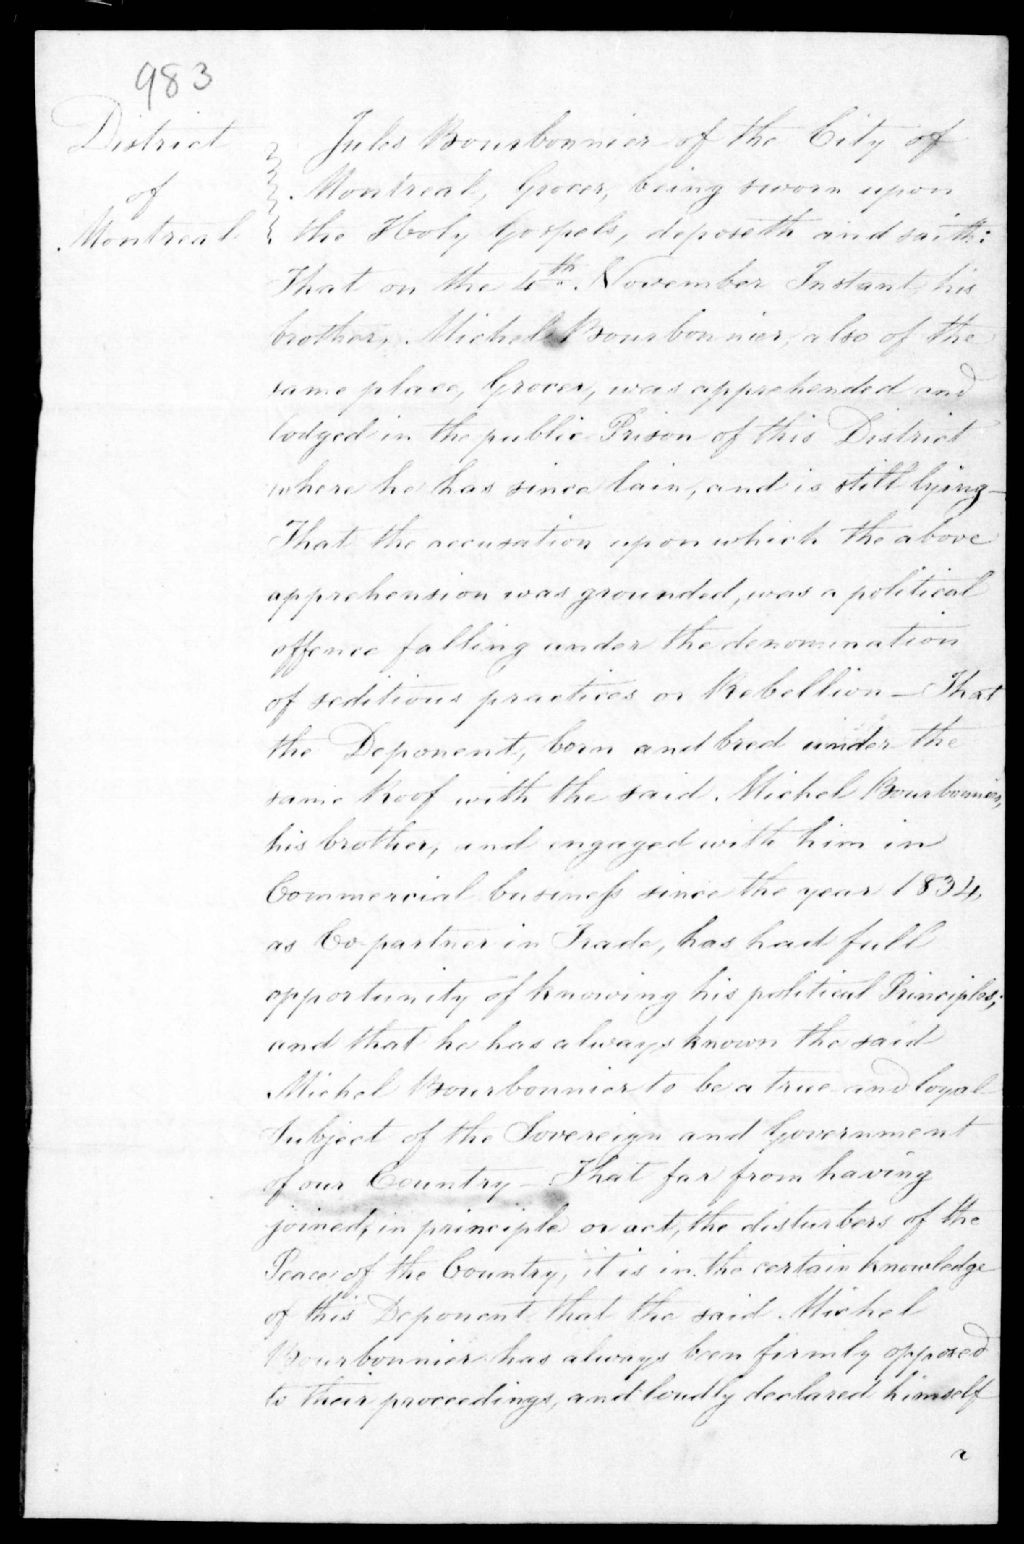 983
District
of
Montreal
Jules Bourbonnier of the City of
Montreal, Grocer, being sworn upon
the Holy Gospels, deposeth and saith:
That on the 4th. November Instant, his
brother, Michel Bourbonnier, also of the
same place, Grocer, was apprehended and
lodged in the public Prison of this District
where he has since lain, and is still lying—
That the accusation upon which the above
apprehension was grounded, was a political
offence falling under the denomination
of seditious practices or Rebellion — That
the Deponent, born and bred under the
same Roof with the said Michel Bourbonnier,
his brother, and engaged with him in
Commercial business since the year 1834,
as Co-partner in Trade, has had full
opportunity of knowing his political Principles;
and that he has always known the said
Michel Bourbonnier to be a true and loyal
Subject of the Sovereign and Government
of our Country — That far from having
joined, in principle or act, the disturbers of the
Peace of the Country, it is in the certain knowledge
of this Deponent that the said Michel
Bourbonnier has always been firmly opposed
to their proceedings, and loudly declared himself
a